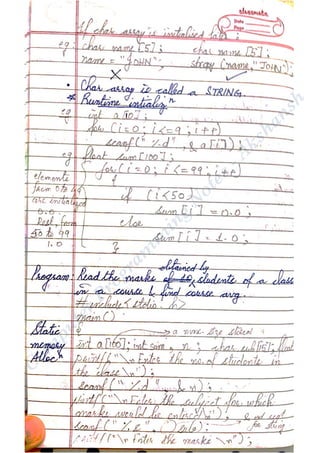 classmate
Date
Page
If char array is initialised late :
eg: char name [5] ; char name [5] ;
name = "JOHN" ; strcpy (name, "JOHN") ;
X ✓
• Char array is called a STRING.
* Runtime intializn
eg int a[10] ;
for (i=0 ; i<=9 ; i++)
scanf("%d", &a[i]) ;
eg float sum[100] ;
for(i=0 ; i<=99 ; i++)
elements {
from 0 to 49 if (i<50)
are initialized sum[i] = 0.0 ;
0.0. else
Rest, from sum[i] = 1.0 ;
50 to 99 }
1.0
obtained by
Program: Read the marks of 10 students of a class
in a course & find course avg.
# include <stdio.h>
main()
Static { → a max. size
memory int a[100]; int sum, n ; char sub[15]; float
Allocn printf("\n Enter the no. of students in
the class \n") ;
scanf("%d", &n) ;
printf("\n Enter the subject for which
marks would be entered \n") ; & not
scanf("%s", sub) ; for string
printf("\n Enter the marks \n") ;